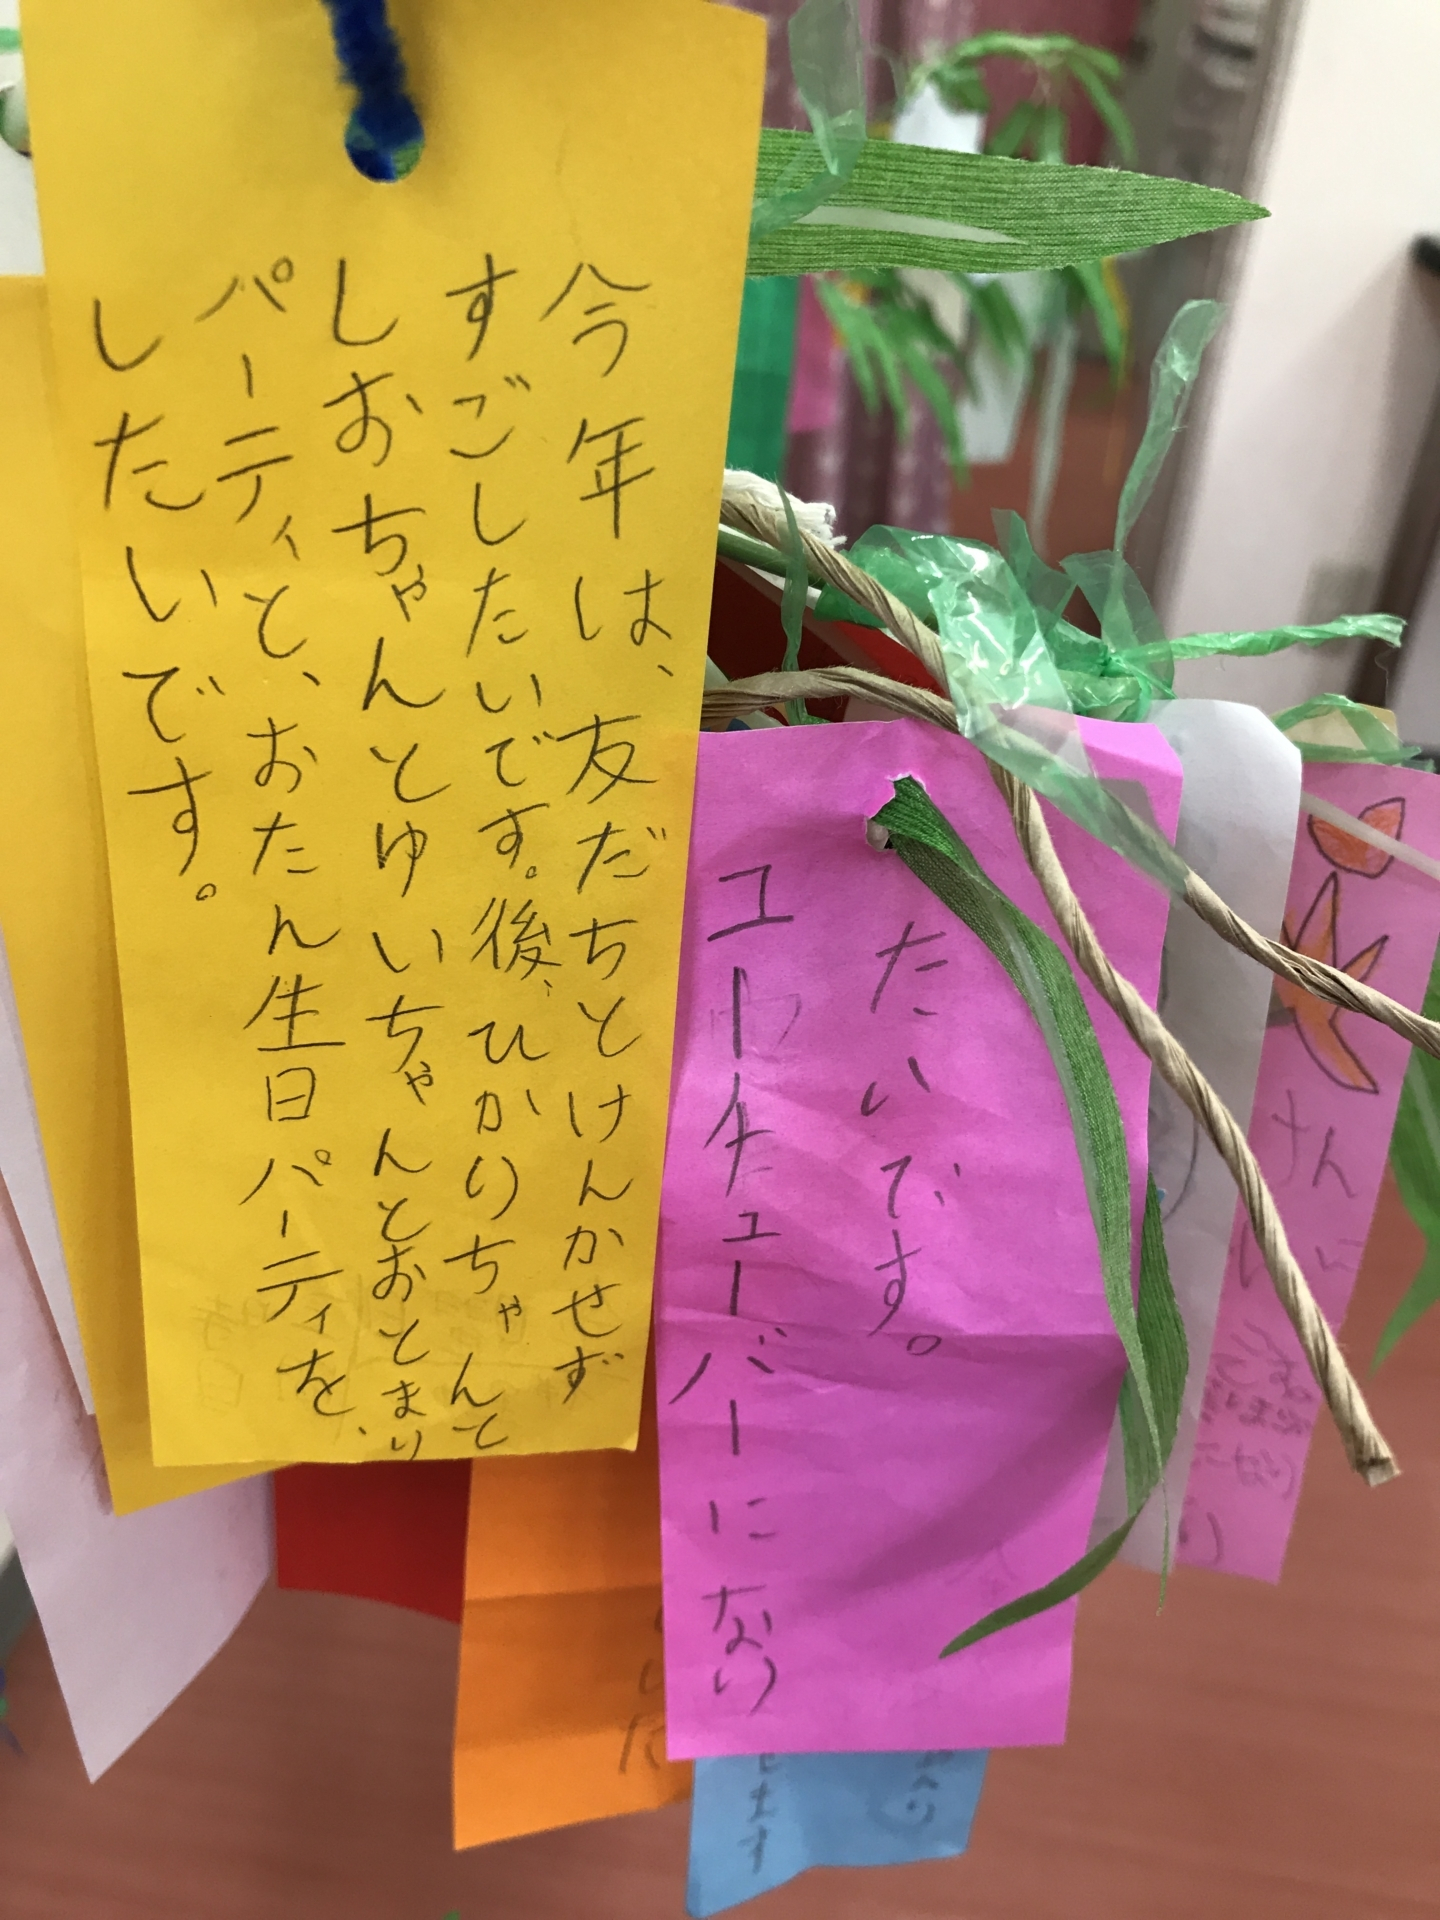 今年は、友だちとけんかせず
すごしたいです。後、ひかりちゃんと
しおちゃんとゆいちゃんとおとまり
パーティと、おたん生日パーティを、
したいです。
たいです。
ユーチューバーになり
さんに